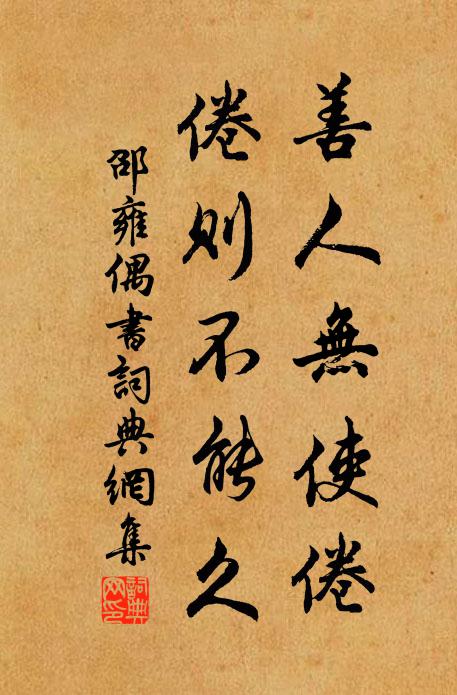 善人無使倦
倦則不能久
邵雍偶書詞典網集
詞典
网印